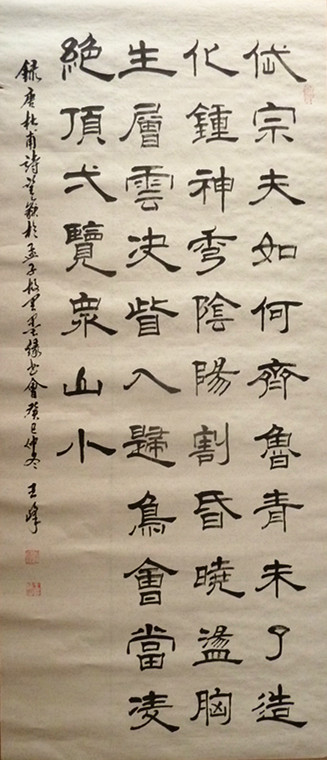 岱宗夫如何齊魯青未了造
化鍾神秀陰陽割昏曉盪胸
生層雲决眥入歸鳥會當凌
絕頂弌覽眾山小
録唐杜甫詩望嶽於孟子故里墨缘书會癸巳仲冬 王峰